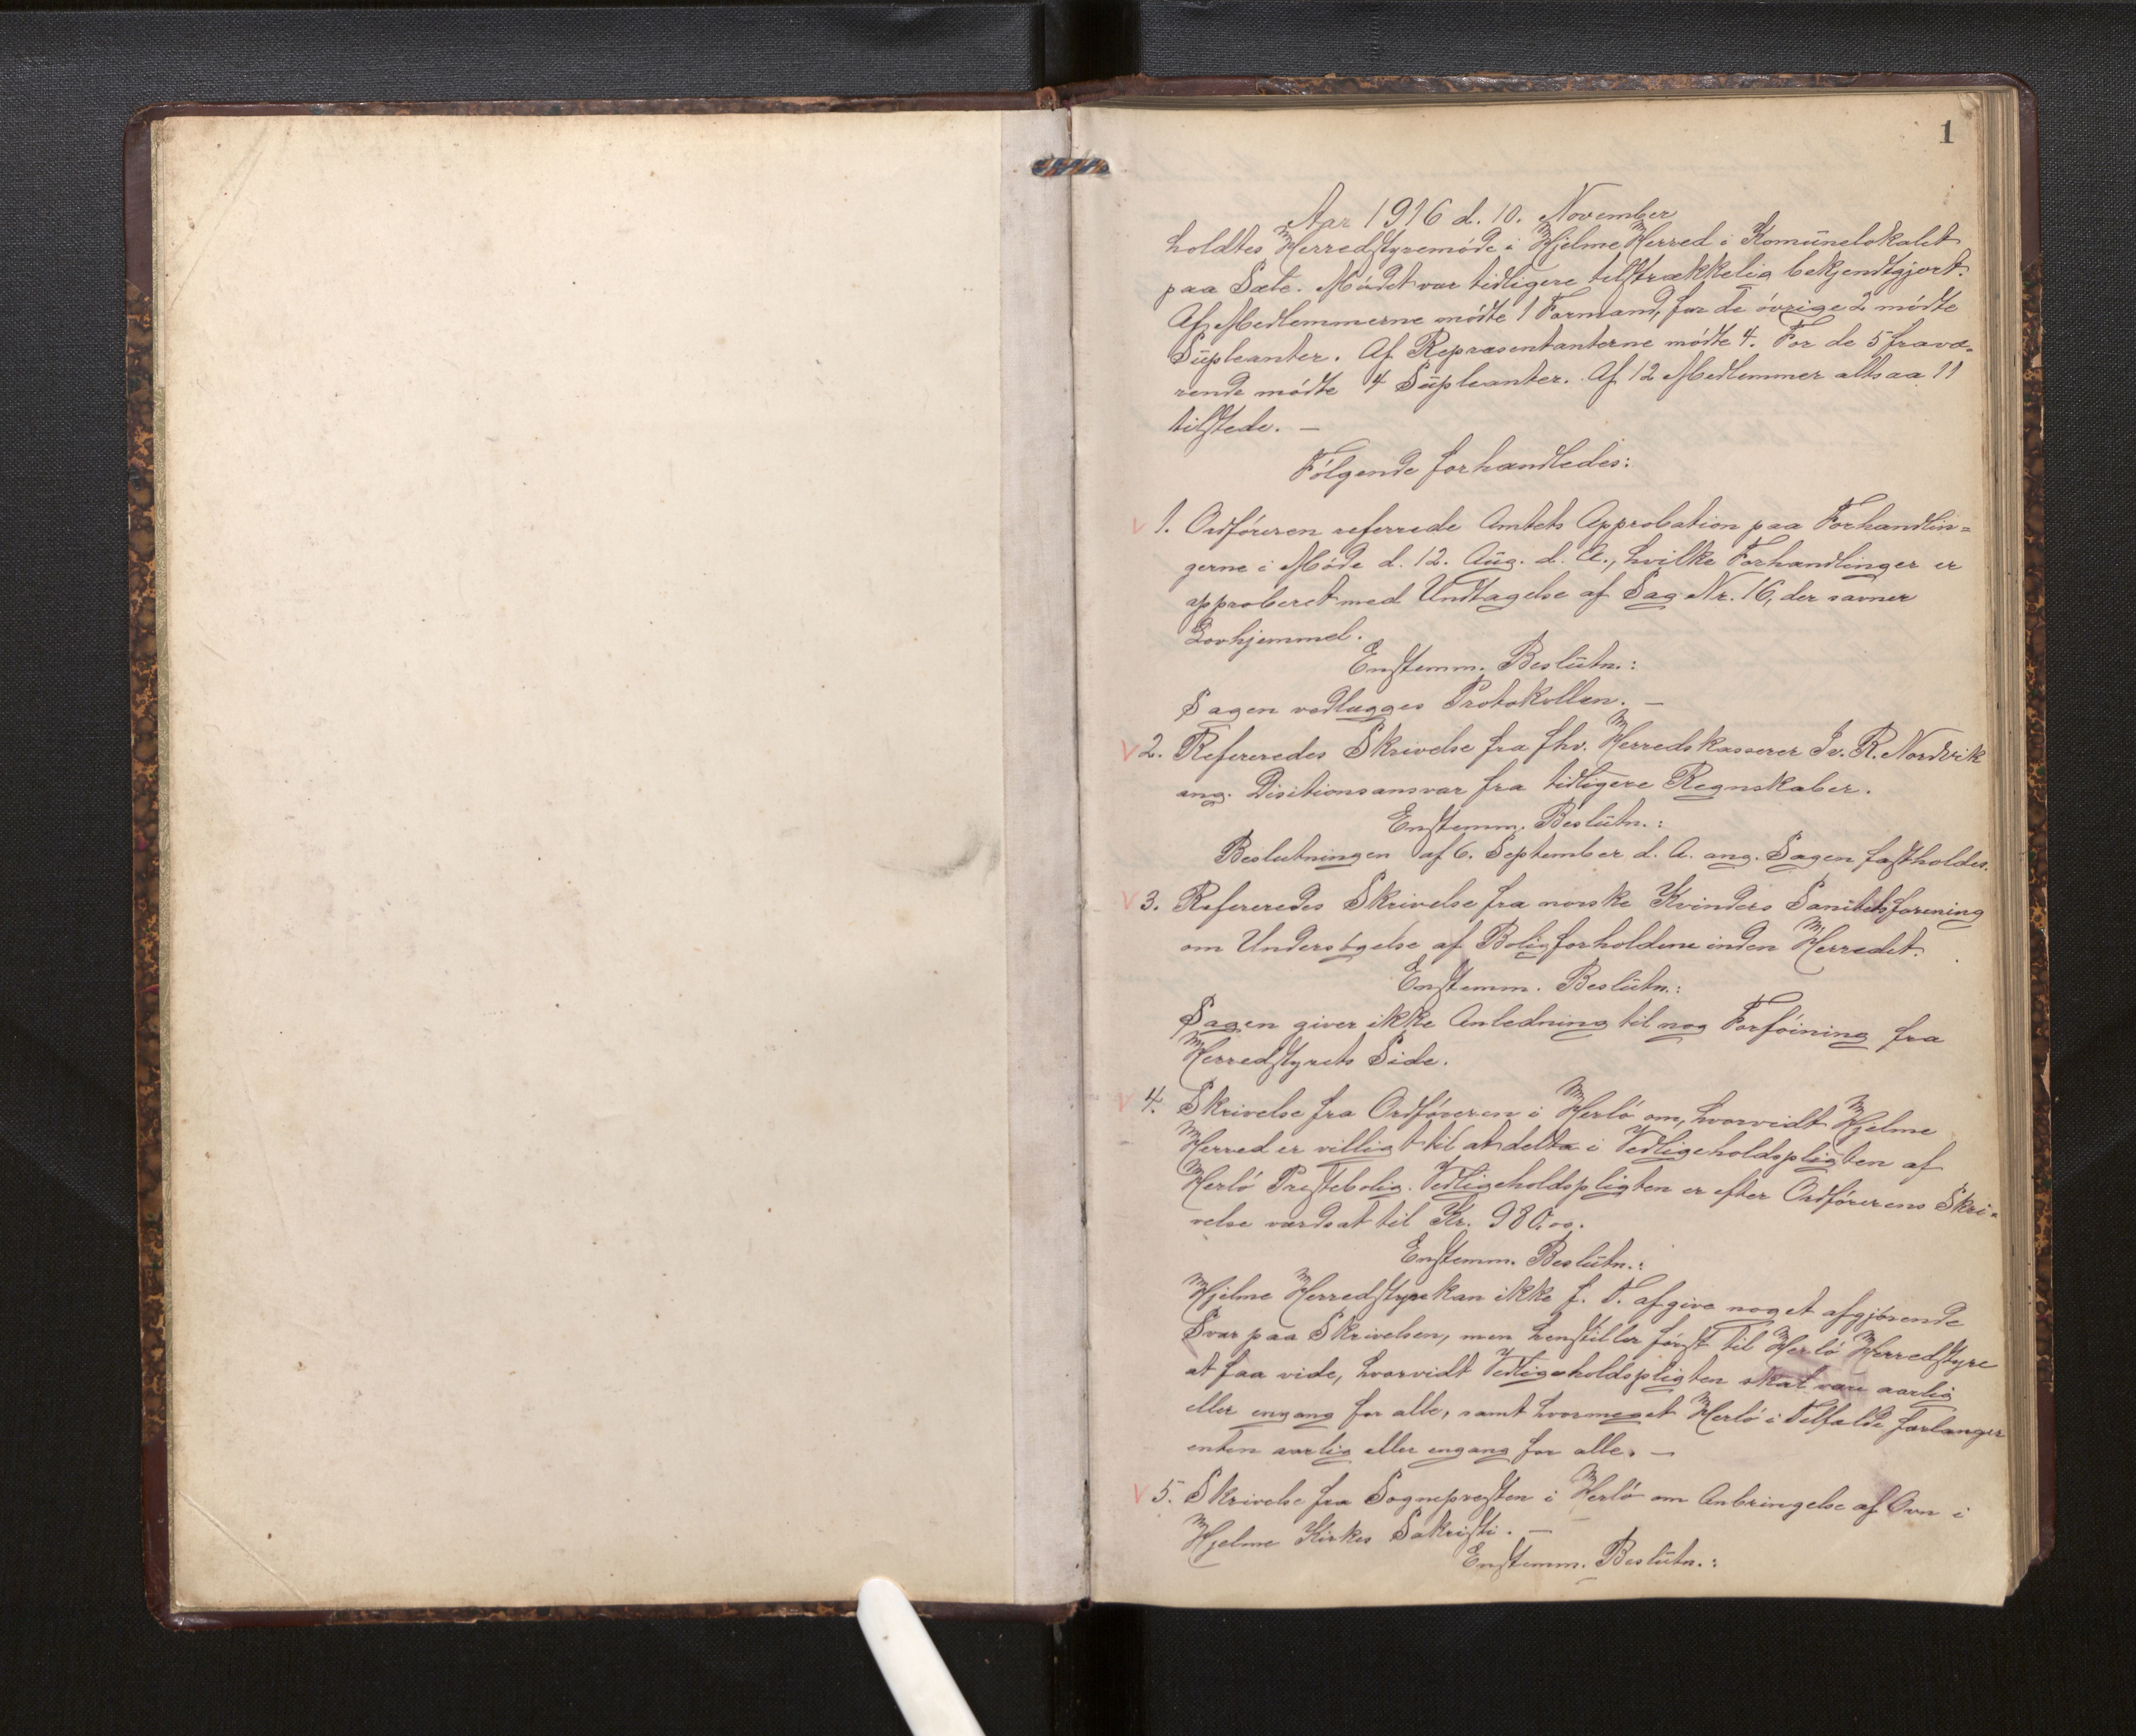 1
Aar 1916 d. 10. November
holdtes Herredstyremöde i Hjelme Herred i Komünelokalet
paa Sæte. Mödet var tidligere tilstrækkelig bekjendtgjort.
Af Medlemmerne mödte 1 Formand, for de övrige 2 mödte
Süpleanter. Af Repræsentanterne mödte 4. For de 5 fravæ-
rende mödte 4 Süpleanter. Af 12 Medlemmer altsaa 11
tilstede. —
Fölgende forhandledes:
V 1. Ordföreren refererede Amtets Approbation paa Forhandlin=
gerne i Möde d. 12. Aüg. d. A., hvilke Forhandlinger er
approberet med Undtagelse af Sag Nr. 16, der savner
Lovhjemmel.
Enstemm. Beslütn.:
Sagen vedlægges Protokollen. —
V 2. Refereredes Skrivelse fra fhv. Herredskasserer Iv. R. Nordvik
ang. Disitionsansvar fra tidligere Regnskaber.
Enstemm. Beslütn.:
Beslutningen af 6. September d. A. ang. Sagen fastholdes.
V 3. Refereredes Skrivelse fra norske Kvinders Sanitetsforening
om Undersögelse af Boligforholdene inden Herredet.
Enstemm. Beslütn.:
Sagen giver ikke Anledning til nog Forföining fra
Herredstyrets Side.
V 4. Skrivelse fra Ordföreren i Herlö om, hvorvidt Hjelme
Herred er villigt til at delta i Vedligeholdspligten af
Herlö Prestebolig. Vedligeholdspligten er efter Ordförerens Skri=
velse værdsat til Kr. 980.00.
Enstemm. Beslütn.:
Hjelme Herredstyre kan ikke f. T. afgive noget afgjörende
Svar paa Skrivelsen, men henstiller förist til Herlö Herredstyre
at faa vide, hvorvidt Vedligeholdspligten skal være aarlig
eller engang for alle, samt hvormeget Herlö i Tilfælde forlanger
enten aarlig eller engang for alle. —
V 5. Skrivelse fra Sognepresten i Herlö om Anbringelse af Ovn i
Hjelme Kirkes Sakristi. —
Enstemm. Beslütn.: